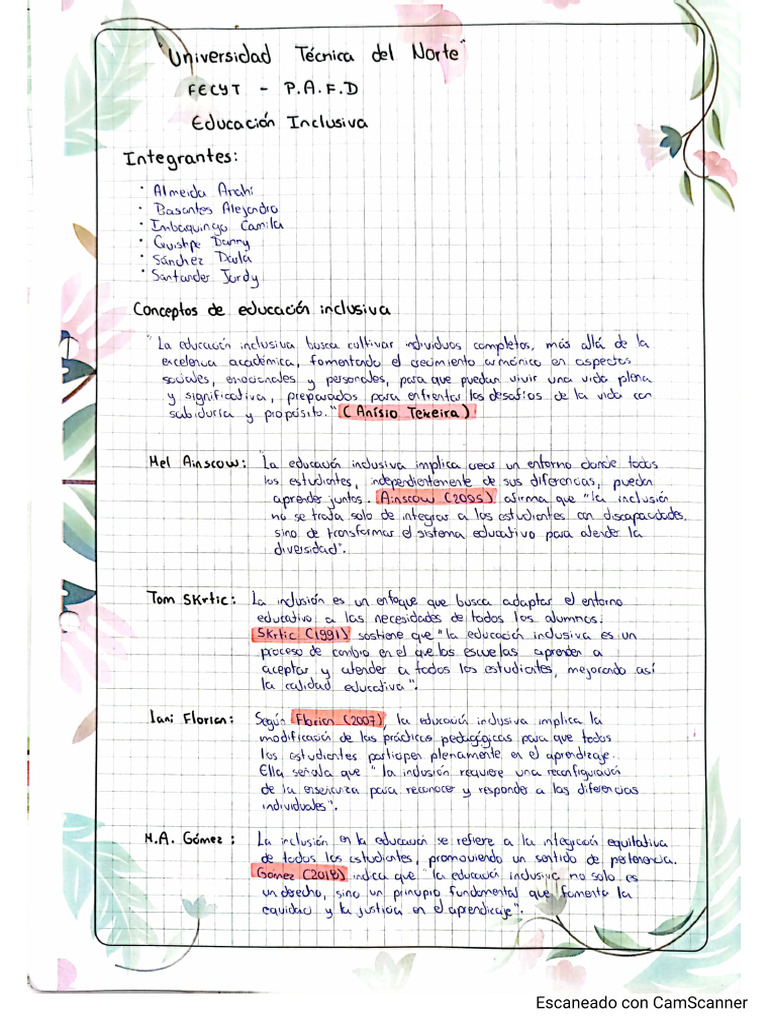 "Universidad Técnica del Norte"
FECYT - P.A.F.D
Educación Inclusiva
Integrantes:
· Almeida Anahi
· Basantes Alejandro
· Imbaquingo Camila
· Quishpe Danny
· Sánchez Paula
· Santander Jordy
Conceptos de educación inclusiva
"La educación inclusiva busca cultivar individuos completos, más allá de la
excelencia académica, fomentando el crecimiento armónico en aspectos
sociales, emocionales y personales, para que puedan vivir una vida plena
y significativa, preparados para enfrentar los desafíos de la vida con
sabiduría y propósito." (Anísio Texeira)
Mel Ainscow: "La educación inclusiva implica crear un entorno donde todos
los estudiantes, independientemente de sus diferencias, puedan
aprender juntos. Ainscow (2005) afirma que "la inclusión
no se trata solo de integrar a los estudiantes con discapacidades,
sino de transformar el sistema educativo para atender la
diversidad".
Tom SKrtic: La inclusión es un enfoque que busca adaptar el entorno
educativo a las necesidades de todos los alumnos.
SKrtic (1991) sostiene que "la educación inclusiva es un
proceso de cambio en el que las escuelas aprenden a
aceptar y atender a todos los estudiantes, mejorando así
la calidad educativa".
Lani Florian: Según Florian (2007), la educación inclusiva implica la
modificación de las prácticas pedagógicas para que todos
los estudiantes participen plenamente en el aprendizaje.
Ella señala que "la inclusión requiere una reconfiguración
de la enseñanza para reconocer y responder a las diferencias
individuales".
M.A. Gómez: La inclusión en la educación se refiere a la integración equitativa
de todos los estudiantes, promoviendo un sentido de pertenencia.
Gómez (2018) indica que "la educación inclusiva no solo es
un derecho, sino un principio fundamental que fomenta la
equidad y la justicia en el aprendizaje".
Escaneado con CamScanner